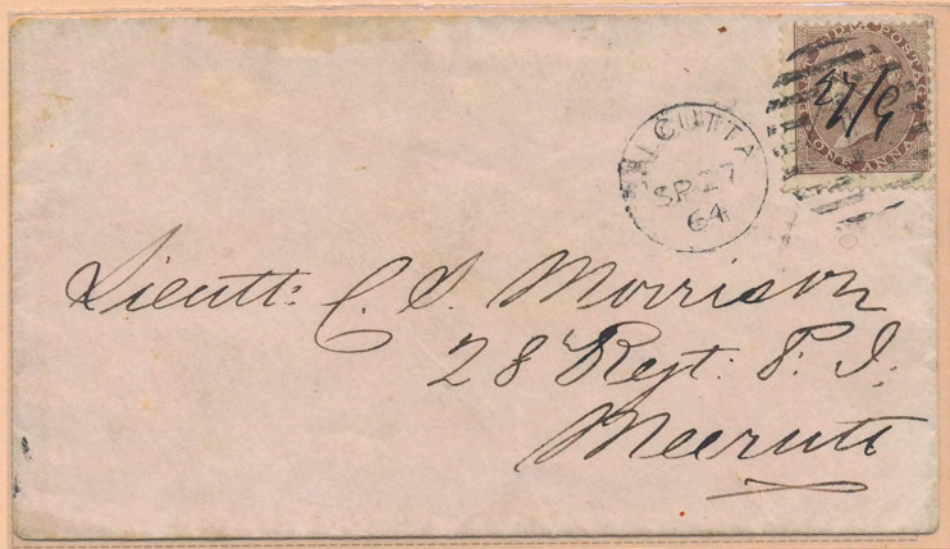 EAST INDIA POSTAGE
27/9
ONE ANNA
CALCUTTA
SP 27
64
Lieutt: C. S. Morrison
28 Regt: P. I.
Meerutt